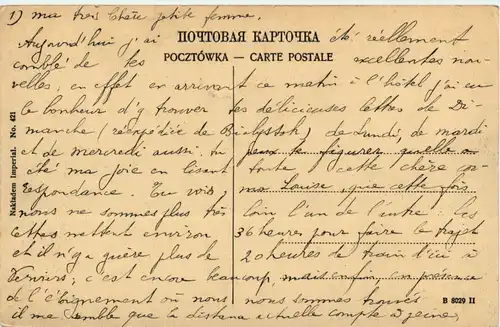 1) ma très chère petite femme.
ПОЧТОВАЯ КАРТОЧКА
POCZTÓWKA — CARTE POSTALE
Aujourd'hui j'ai été réellement
comblé de tes excellentes nou-
velles, en effet en arrivant ce matin à l'hôtel j'ai eu
le bonheur d'y trouver tes délicieuses lettres de Di-
manche (réexpédiée de Bialystok) de Lundi, de mardi
et de mercredi aussi. tu peux te figurer quelle a
été ma joie en lisant toute cette chère co-
respondance. Tu vois, ma Louise, que cette fois
nous ne sommes plus très loin l'un de l'autre: les
lettres mettent environ 36 heures pour faire le trajet
et il n'y a guère plus de 20 heures de train d'ici à
Verviers; c'est encore beaucoup, mais enfin en présence
de l'éloignement où nous nous sommes trouvés
il me semble que la distance actuelle compte à peine;
Nakładem Imperial. No. 421
B 8029 II